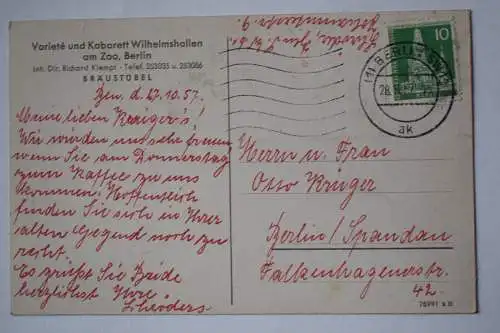 Varieté und Kabarett Wilhelmshallen
am Zoo, Berlin
Inh. Dir. Richard Klempt - Telef. 253035 u. 253086
BRÄUSTÜBEL
Bln. d. 27.10.57.
Meine lieben Krüger's!
Wir würden uns sehr freuen,
wenn Sie am Donnerstag
zum Kaffee zu uns
kommen. Hoffentlich
finden Sie sich in Ihrer
alten Gegend noch zu-
recht.
Es grüßt Sie Beide
herzlichst Ihre
Schröders
10
(1) BERLIN SW
28.
ak
Herrn u. Frau
Otto Krüger
Berlin/Spandau
Falkenhagenerstr.
42.